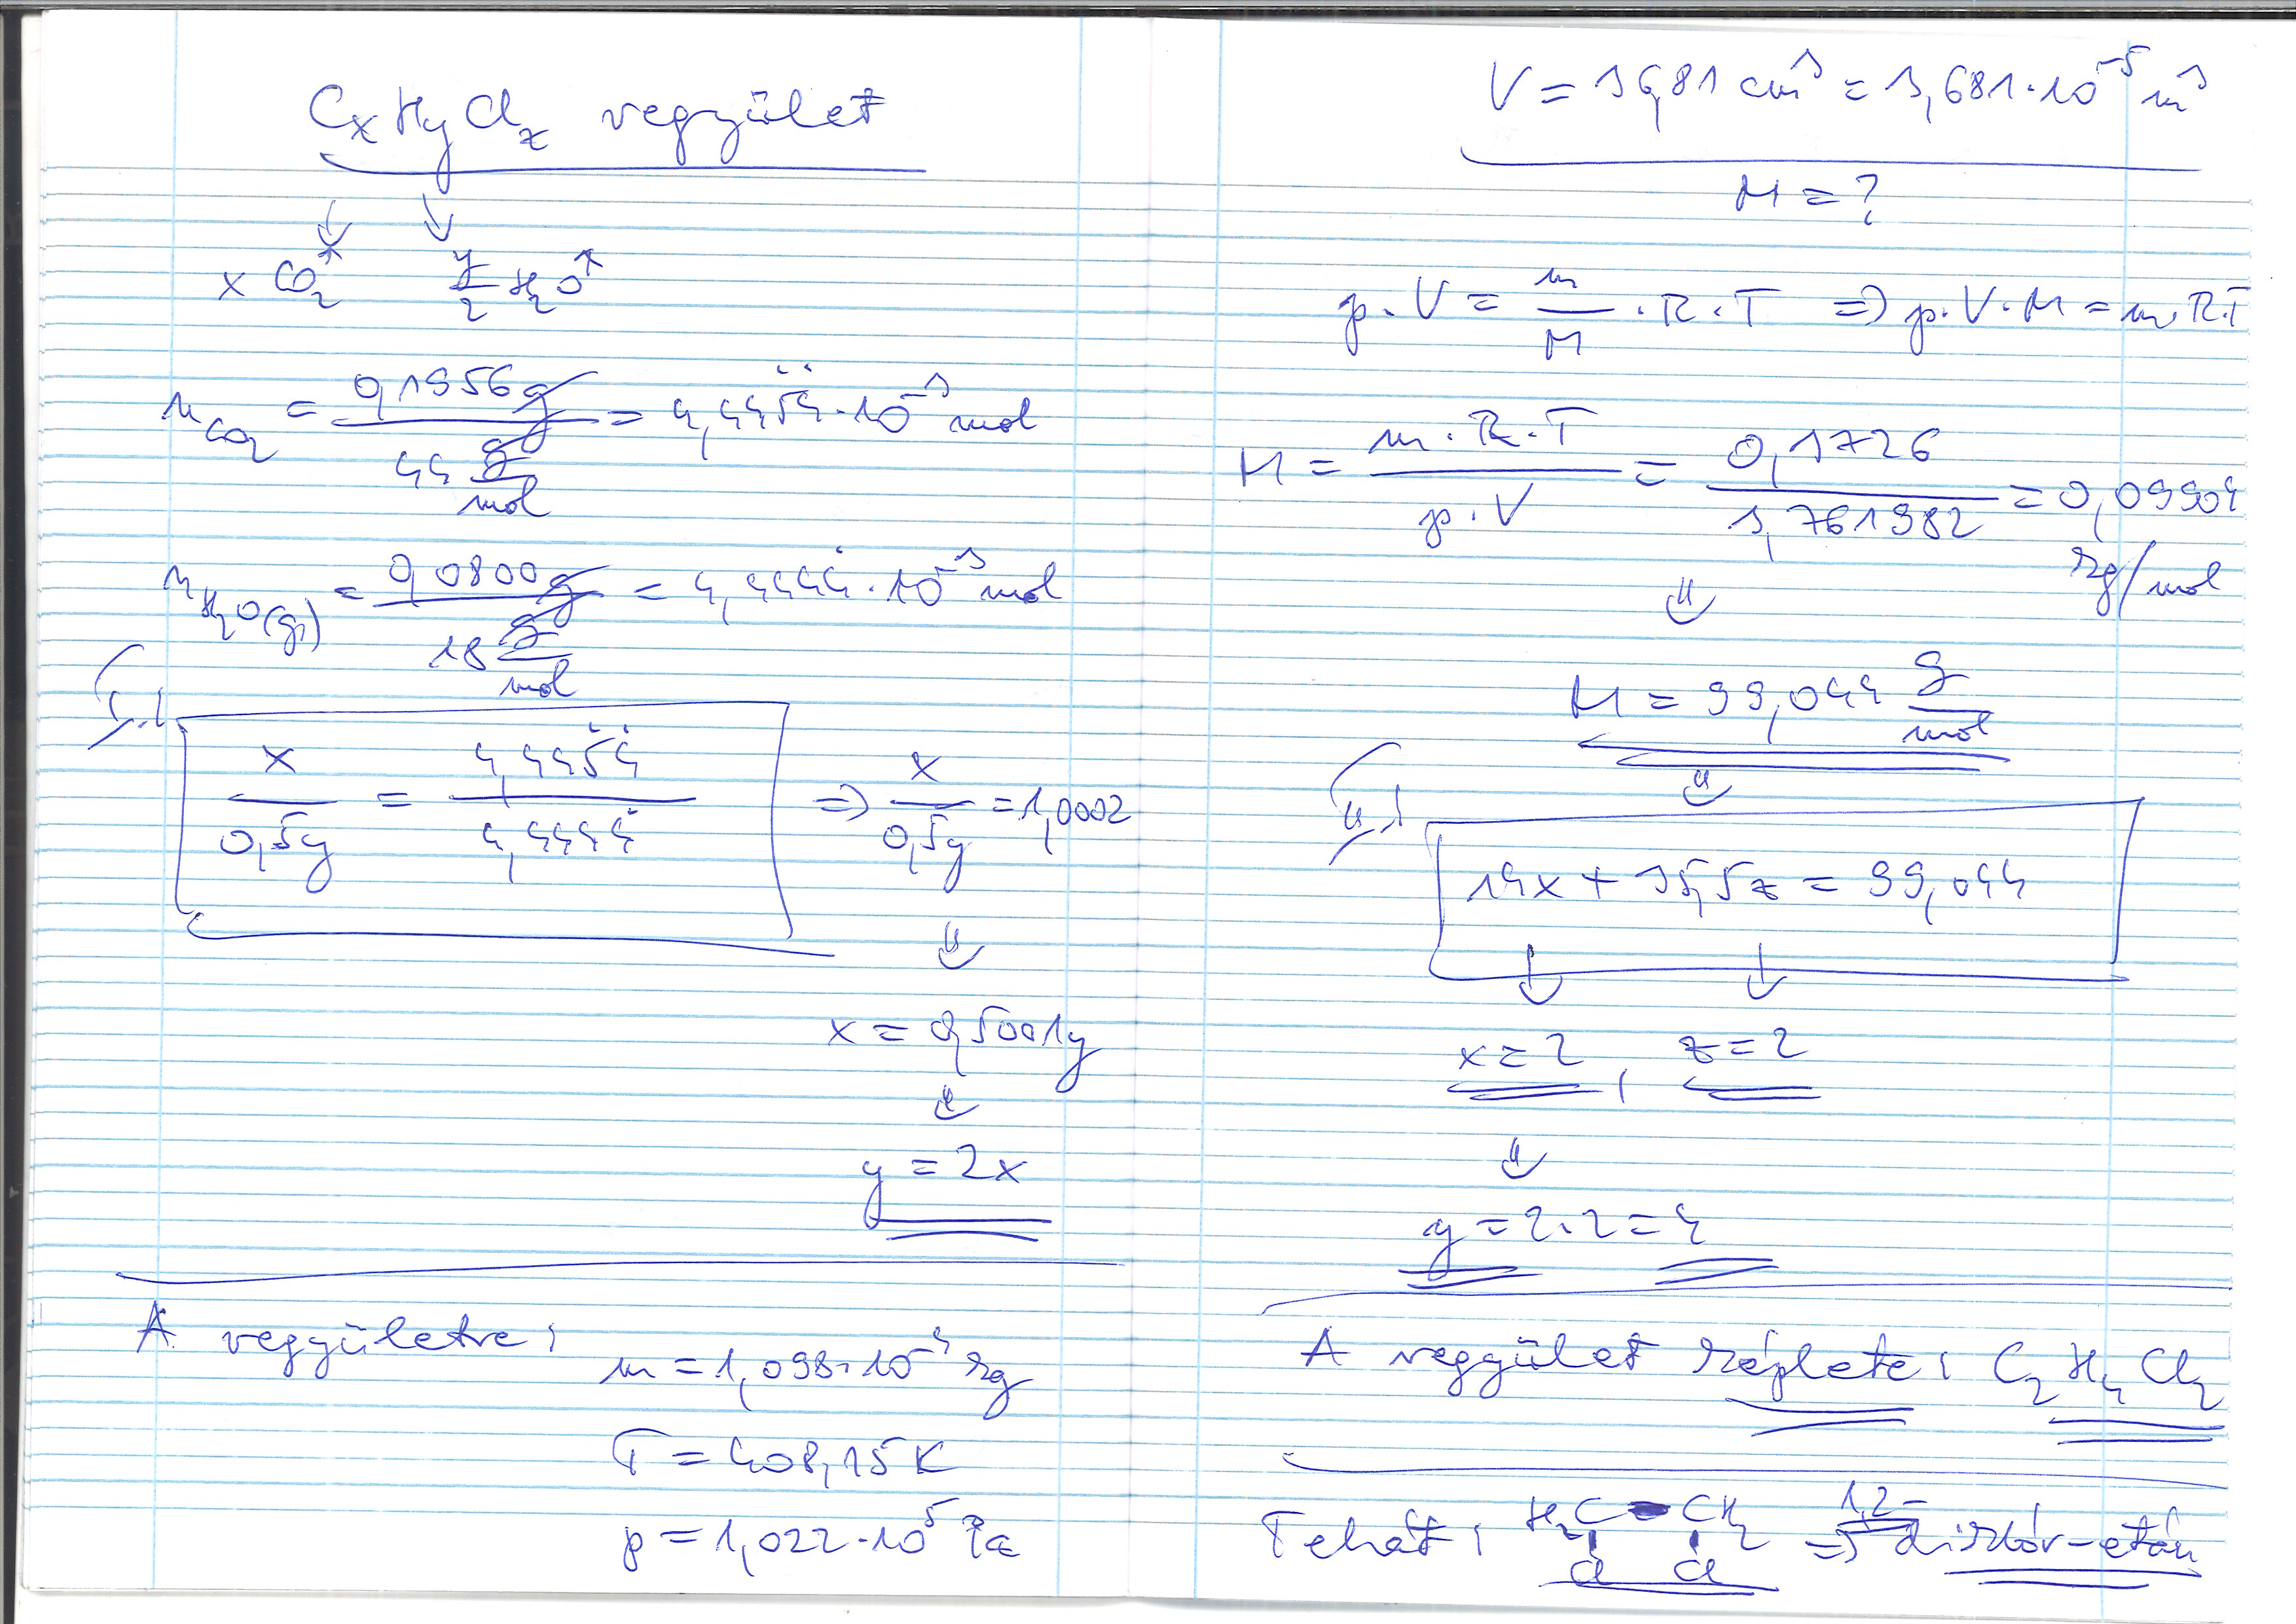 CxHyClz vegyület
↓ ↓
x CO2↑ y/2 H2O↑
nCO2 = 0,1956g / 44 g/mol = 4,4454·10⁻³ mol
nH2O(g) = 0,0800g / 18 g/mol = 4,4444·10⁻³ mol
I.)
x / 0,5y = 4,4454 / 4,4444 => x / 0,5y = 1,0002
⇓
x = 0,5001y
⇓
y = 2x
A vegyületre:
m = 1,098·10⁻⁴ kg
T = 408,15 K
p = 1,022·10⁵ Pa
V = 36,81 cm³ = 3,681·10⁻⁵ m³
M = ?
p·V = m/M · R·T => p·V·M = m·R·T
M = m·R·T / p·V = 0,3726 / 3,761982 = 0,09904
kg/mol
⇓
M = 99,044 g/mol
⇓
II.)
14x + 35,5z = 99,044
↓ ↓
x = 2, z = 2
⇓
y = 2·2 = 4
A vegyület képlete: C2H4Cl2
Tehát: H2C – CH2 => 1,2-diklór-etán
Cl Cl